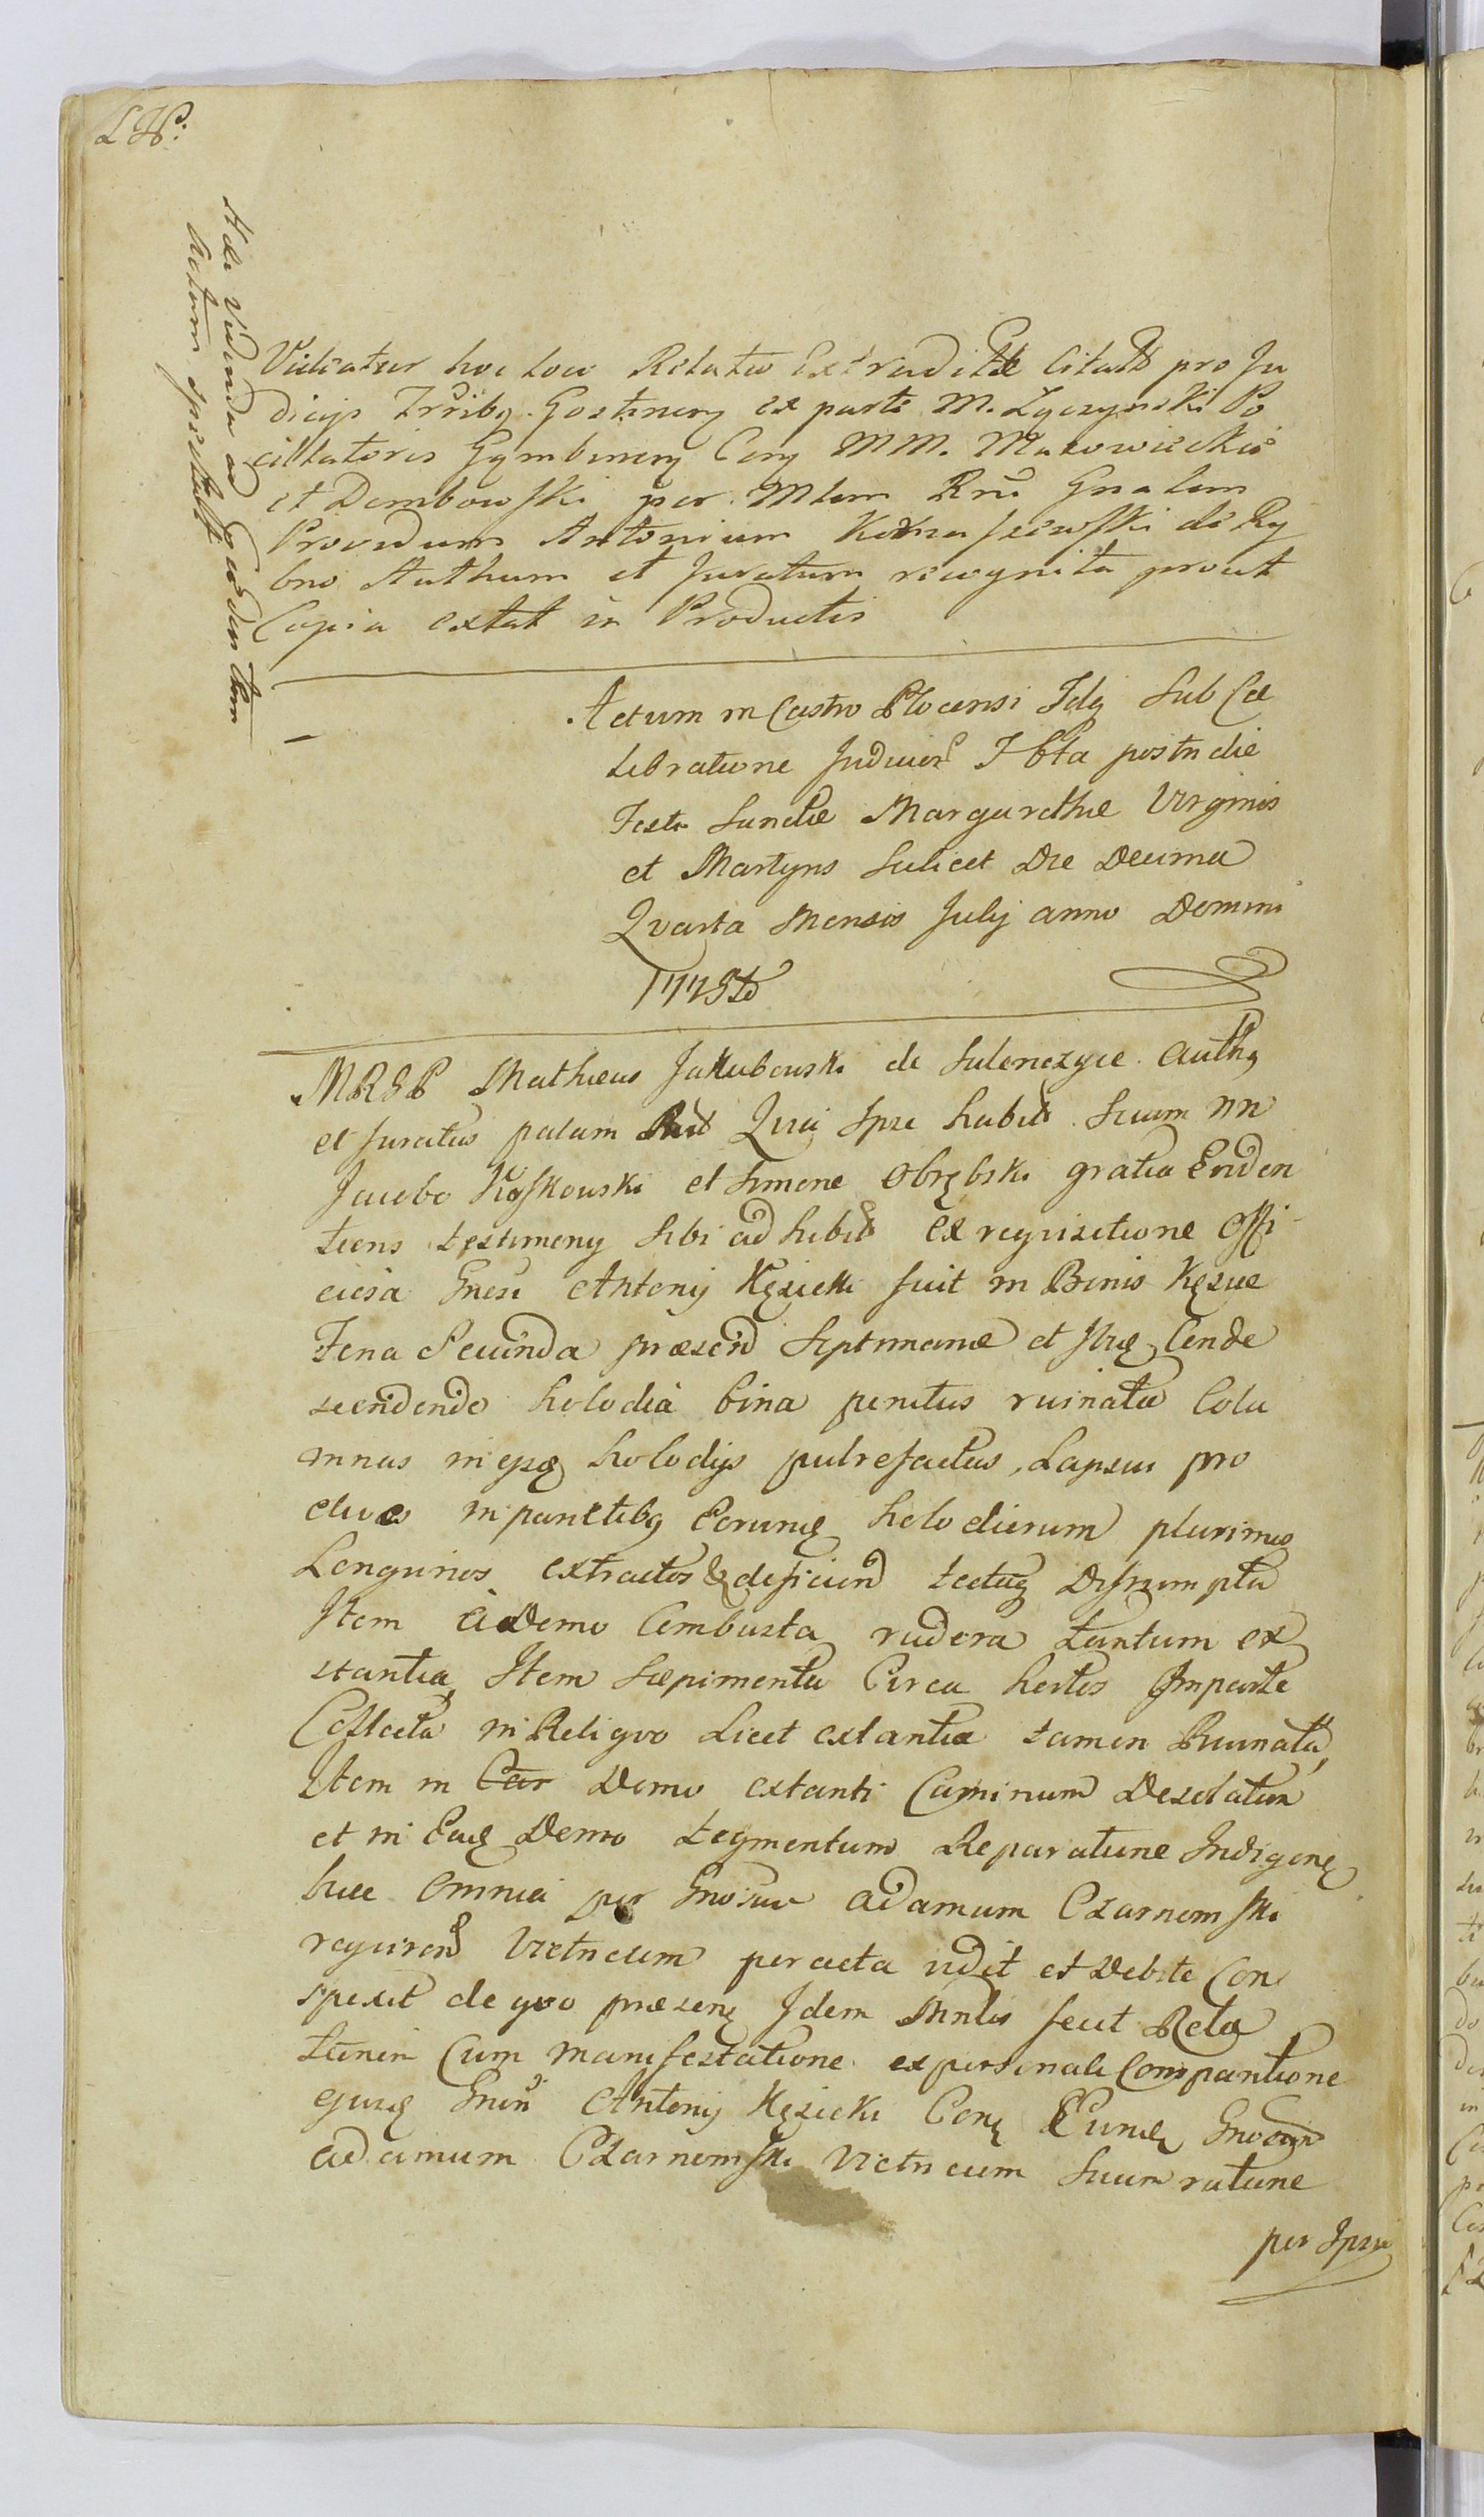 LH:
Ade Videnda ad Evidentem
Actum spectatt
Videatur hoc loco Relatio Extraditae Citatt pro Ju
dicijs Trribg. Gostinen ex parte M. Łyczynski Po
cillatoris Gymbinen Con MM. Makowieckie
et Dembowski per Mlem Rni Gnalem
Providum Antonium de Ry
bno Authum et Juratum recognita prout
Copia extat in Productis
Actum in Castro Plocensi Idq Sub Ce
lebratione Judicior Fbta postridie
Festi Sanctae Margarethae Virginis
et Martyris Scilicet Die Decima
Qvarta Mensis Julij anno Domini
MRGP Matheus Jakubowski de Sulenczyce Auth9
et Juratus palam Rect Quia Ipse habit Secum nn
Jacobo Koskowski et Simone Obrębski gratia Eviden
tiens testimony Sibi ad hibit Ex reqvisitione Offi
ciosa Gnosi Antonij Kęsicki fuit in Bonis Kęsice
Feria Secunda praesend Septimanae et Conde
scendendo holodia bina penitus ruinata Colu
mnas in eysq holodijs putrefactas, Lapsui pro
clives in parietibq Eorunq holodierum plurimos
Longurios extractos deficiend tectuq Disrumptu
Item Domo Combusta rudera tantum ex
stantia Item Saepimenta Circa hortos Imparte
Collecta in Reliqvo Licet extantia tamen Ruinata,
Item in Car Domo extanti Caminum Desolatum
et in Eadq Domo tegmentum Reparatione Indigens
haec Omnia per Gnosum Adamum Czarnomski
reqvirend Victricum peracta vidit et Debite Con
spexit de qvo praesens Idem Mnlis fecit Rela
tionem Cum Manifestatione ex personali Comparitione
ejusq Gnsi Antonij Kęsicki Con Eunq Gnosum
Adamum Czarnomski Victricum Suum ratione
per Ipsu